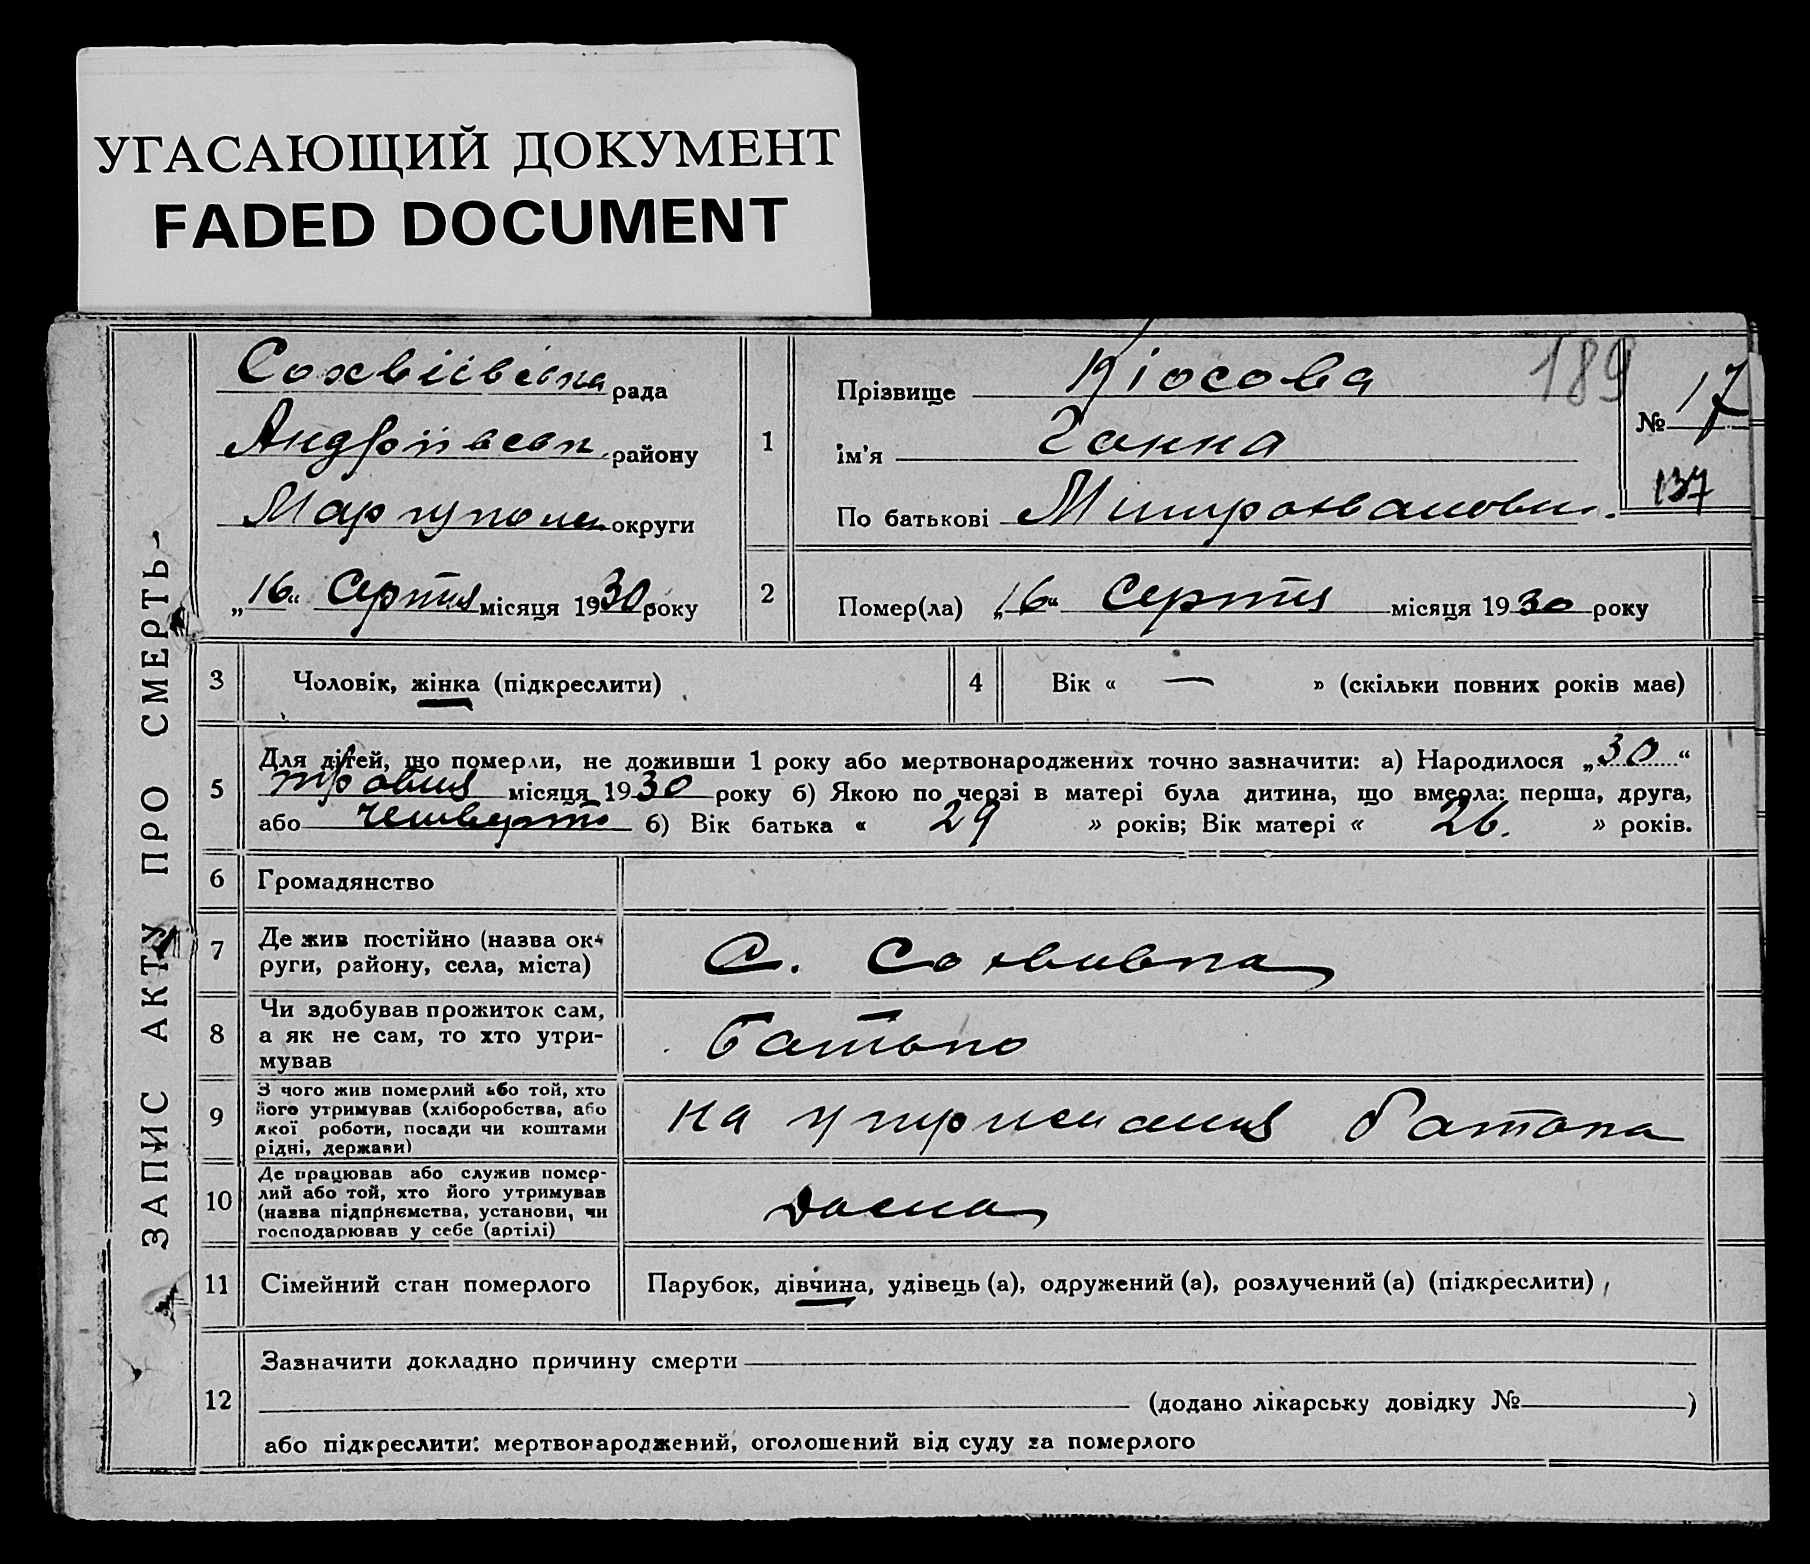 УГАСАЮЩИЙ ДОКУМЕНТ
FADED DOCUMENT
ЗАПИС АКТУ ПРО СМЕРТЬ
рада
Андріївськ. району
Маріупольськ округи
„16“ Серпня місяця 1930 року
1
Прізвище Кіосова
ім'я Ганна
По батькові Митрофановн.
189
№ 17
137
2
Помер(ла) „16“ Серпня місяця 1930 року
3
Чоловік, жінка (підкреслити)
4
Вік « — » (скільки повних років має)
5
Для дітей, що померли, не доживши 1 року або мертвонароджених точно зазначити: а) Народилося „30“
травня місяця 1930 року б) Якою по черзі в матері була дитина, що вмерла: перша, друга,
або четверта б) Вік батька « 29 » років; Вік матері « 26. » років.
6
Громадянство
7
Де жив постійно (назва ок-
руги, району, села, міста)
С. Софиивка
8
Чи здобував прожиток сам,
а як не сам, то хто утри-
мував
Батько
9
З чого жив померлий або той, хто
його утримував (хліборобства, або
якої роботи, посади чи коштами
рідні, держави)
на утримания батька
10
Де працював або служив помер-
лий або той, хто його утримував
(назва підприємства, установи, чи
господарював у себе (артілі)
11
Сімейний стан померлого
Парубок, дівчина, удівець (а), одружений (а), розлучений (а) (підкреслити)
12
Зазначити докладно причину смерти
(додано лікарську довідку № )
або підкреслити: мертвонароджений, оголошений від суду за померлого